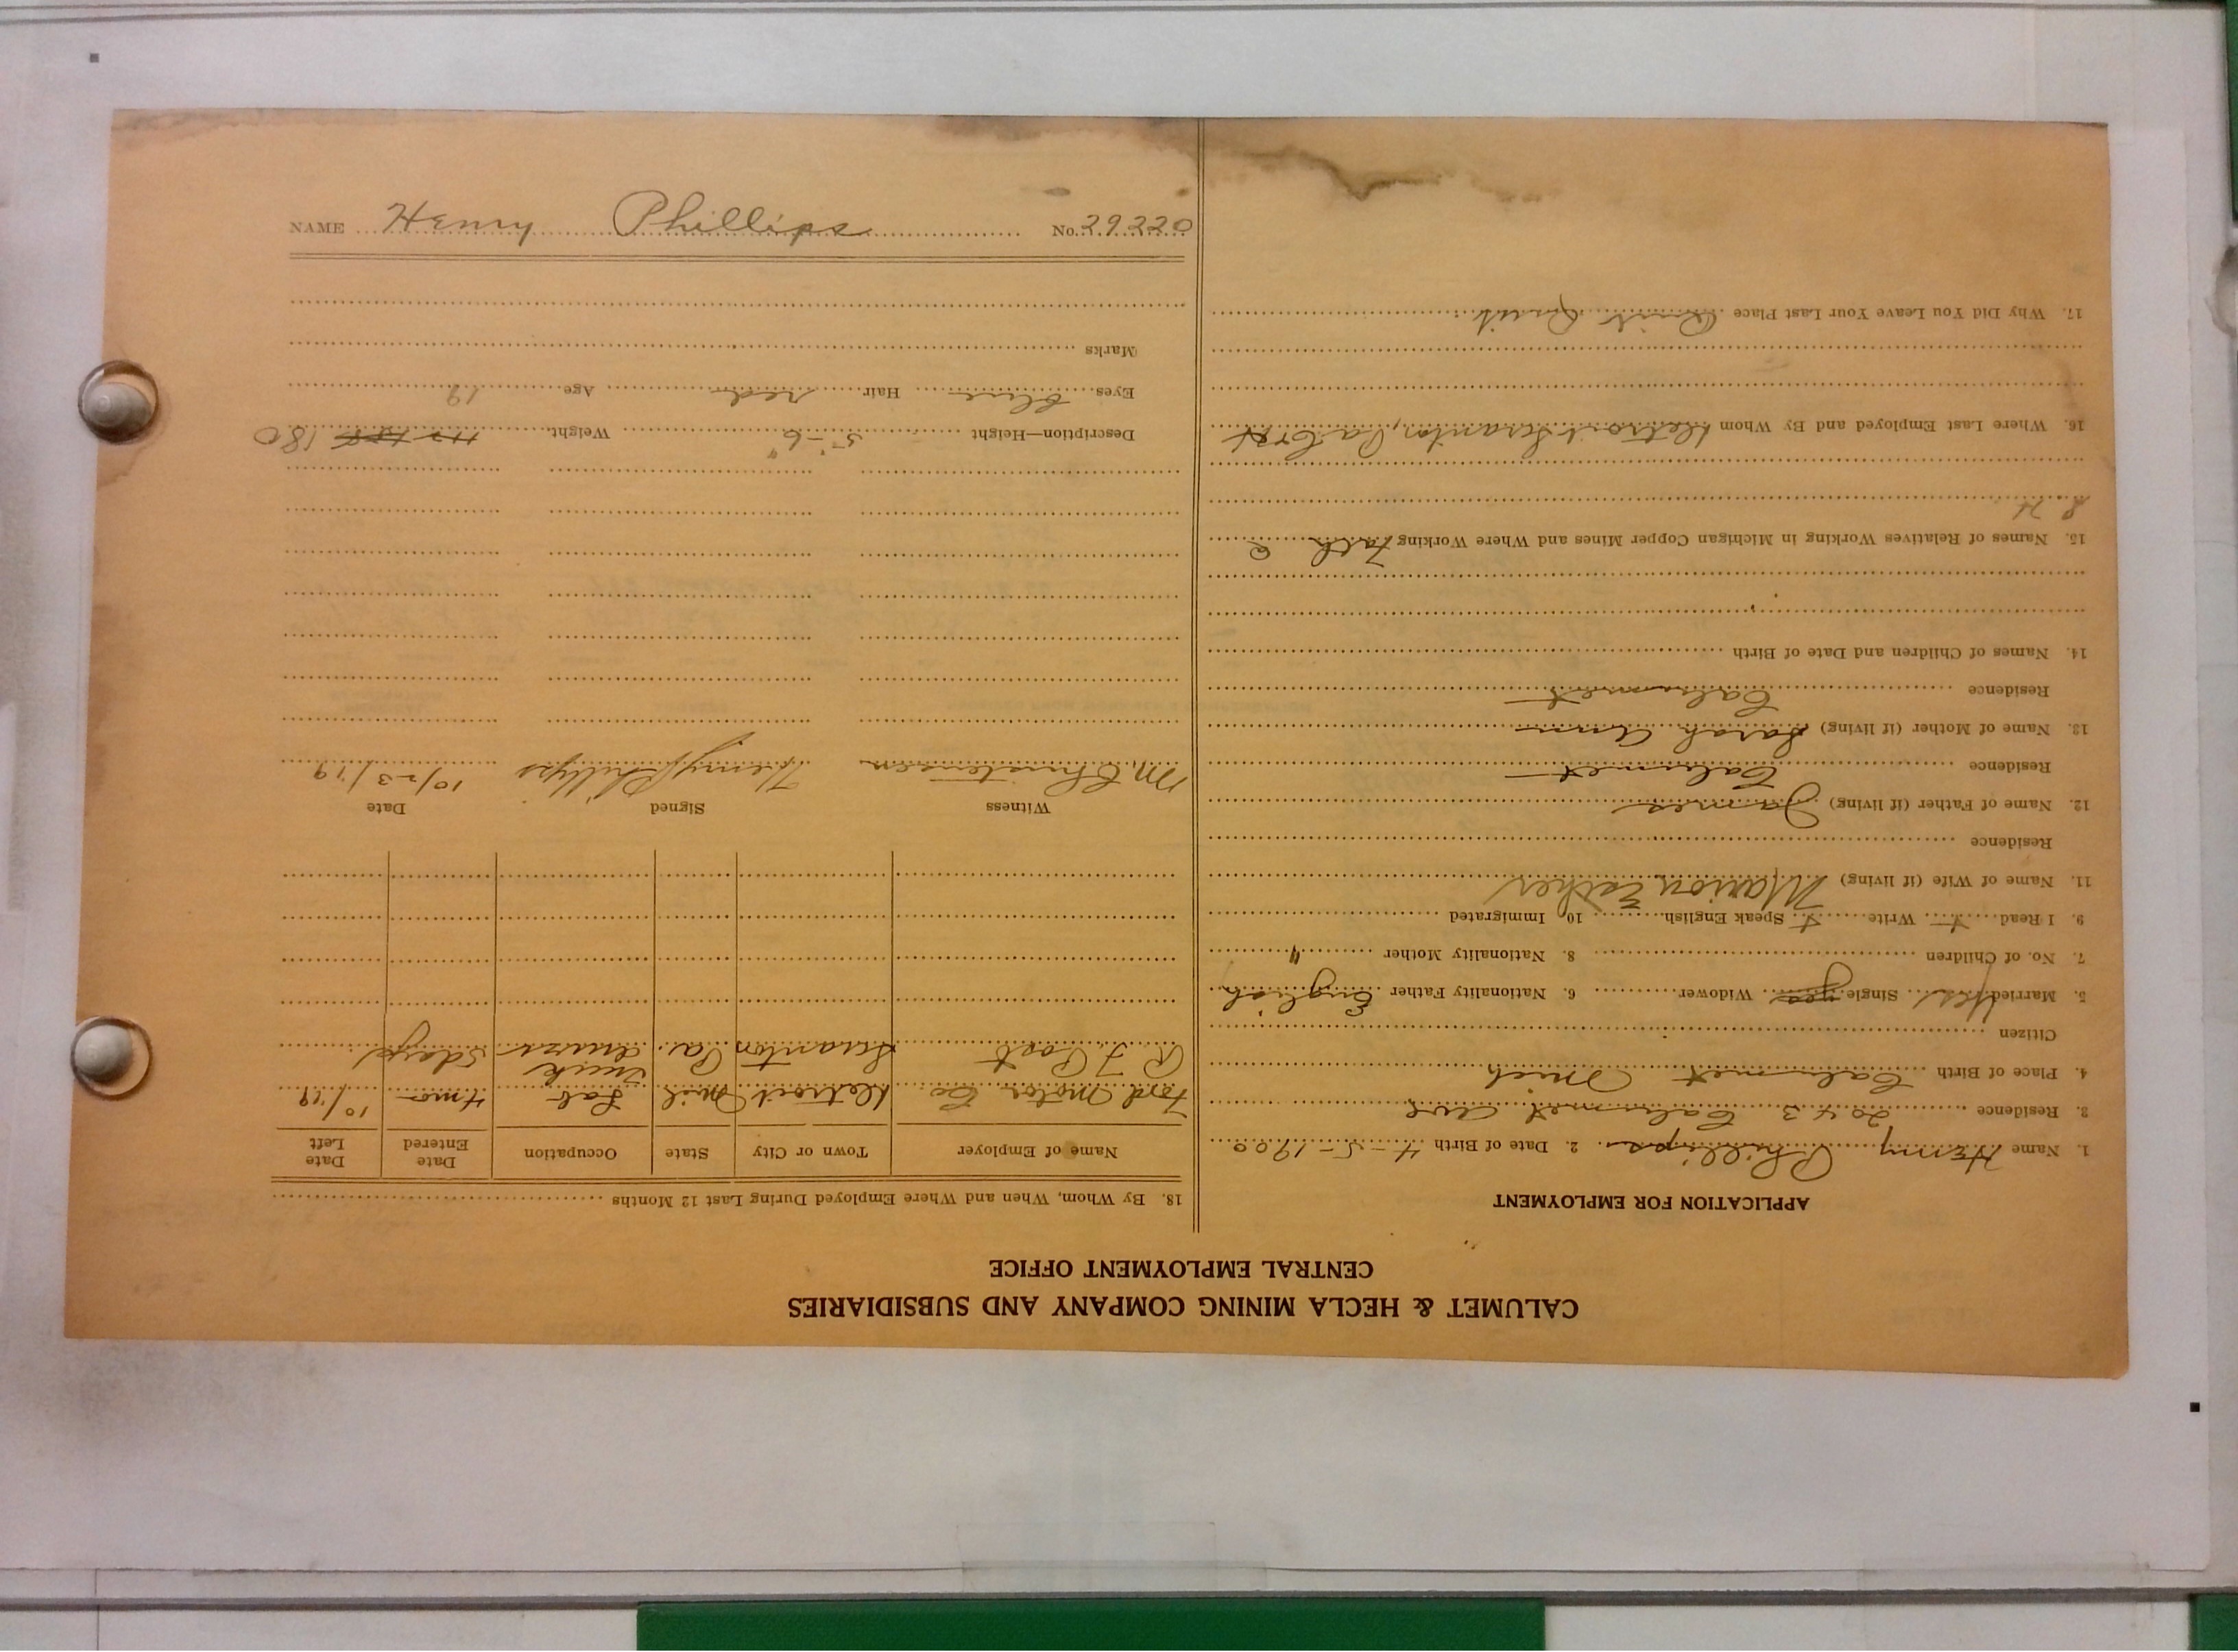 CALUMET & HECLA MINING COMPANY AND SUBSIDIARIES
CENTRAL EMPLOYMENT OFFICE
APPLICATION FOR EMPLOYMENT
1. Name Henry Phillips 2. Date of Birth 4-5-1900
3. Residence 2043 Calumet Ave
4. Place of Birth Calumet Mich
Citizen
5. Married Yes Single yes Widower 6. Nationality Father English
7. No. of Children 8. Nationality Mother "
9. I Read + Write + Speak English 10 Immigrated
11. Name of Wife (if living) Marion Esther
Residence
12. Name of Father (if living) James
Residence Calumet
13. Name of Mother (if living) Sarah Ann
Residence Calumet
14. Names of Children and Date of Birth
15. Names of Relatives Working in Michigan Copper Mines and Where Working Fath C
& H
16. Where Last Employed and By Whom Detroit Scranton, Pa
17. Why Did You Leave Your Last Place Quit Quit
18. By Whom, When and Where Employed During Last 12 Months
Name of Employer Town or City State Occupation Date Entered Date Left
Ford Motor Co Detroit Mich Lab 4 mos 10/19
R F Post Scranton Pa. Truck 5 days
Witness Signed Date
M. Christensen Henry Phillips 10/23/19
Description—Height 5'-6" Weight 180
Eyes blue Hair red Age 19
Marks
NAME Henry Phillips No. 29220